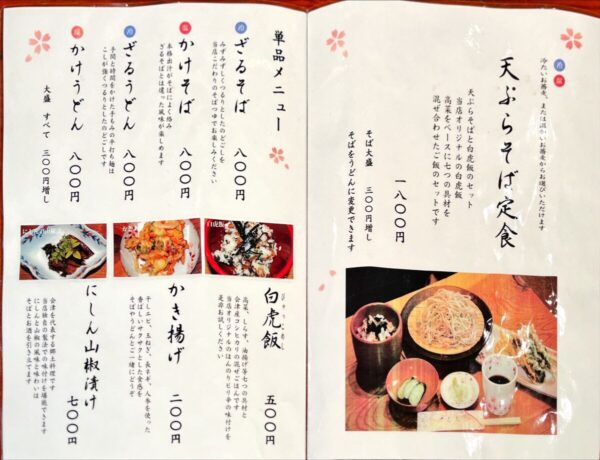 冷 温
冷たいお蕎麦、または温かいお蕎麦からお選びいただけます
天ぷらそば定食
天ぷらそばと白虎飯のセット
当店オリジナルの白虎飯
高菜をベースに七つの具材を
混ぜ合わせたご飯のセットです
一八〇〇円
そば大盛 三〇〇円増し
そばをうどんに変更できます
単品メニュー
冷
ざるそば 八〇〇円
みずみずしくつるりとしたのどごしを
当店こだわりのそばつゆでお楽しみください
温
かけそば 八〇〇円
本格出汁がそばによく絡み
ざるそばとは違った風味が楽しめます
冷
ざるうどん 八〇〇円
温
かけうどん 八〇〇円
手間と時間をかけた手もみの手打ち麺は
こしが強くつるりとしたのどごしです
大盛 すべて 三〇〇円増し
白虎飯
かき揚げ
白虎飯 五〇〇円
びゃっこめし
高菜、しらす、油揚げ等七つの具材と
会津産コシヒカリの混ぜごはんです
当店オリジナルのほんのりピリ辛の味付けを
是非お試しください
かき揚げ 二〇〇円
干しエビ、玉ねぎ、長ネギ、人参を使った
香ばしいサクサクとした食感を
そばやうどんとご一緒にどうぞ
にしん山椒漬け 七〇〇円
会津を代表する郷土料理です
当店独自の製法での味付けを堪能できます
にしんと山椒の風味と味わいは
そばとお酒を引き立てます